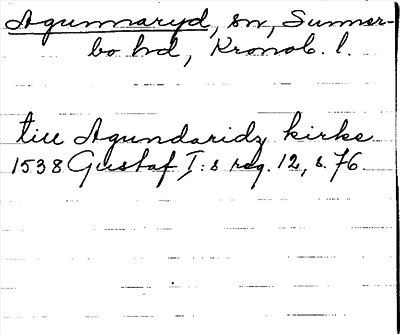 Agunnaryd, sn, Sunner-
bo hd, Kronob. l.
till Agundaridz kirke
1538 Gustaf I:s reg. 12, s. 76.